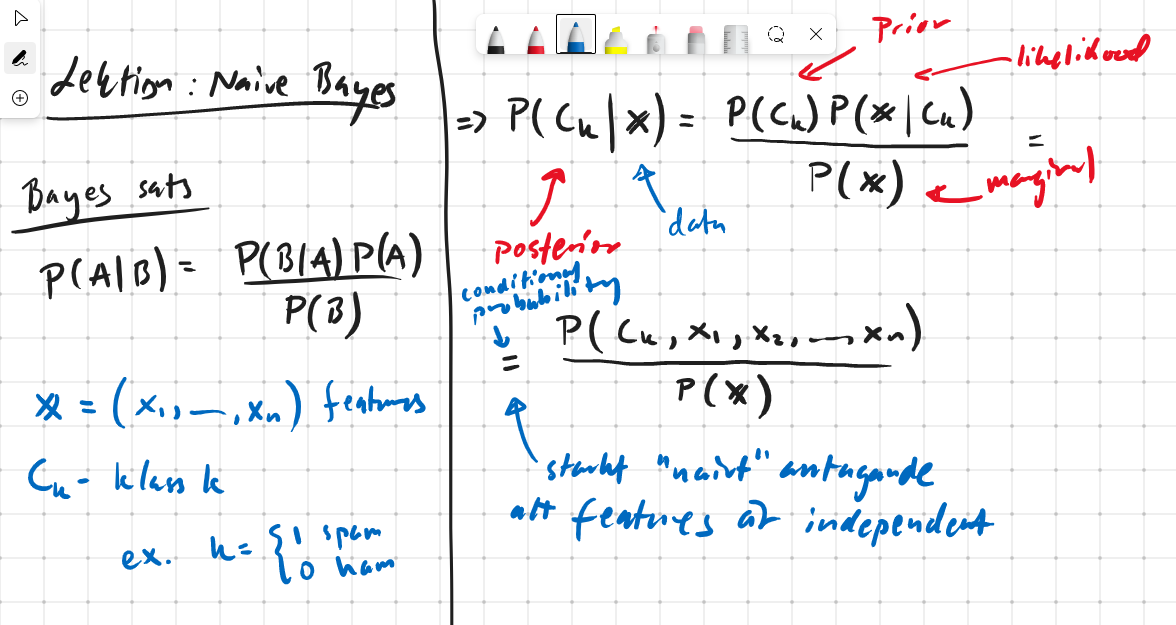 Lektion: Naive Bayes
Bayes sats
P(A|B) = P(B|A) P(A) / P(B)
𝕩 = (x₁, —, xₙ) features
Cₖ - klass k
ex. k = { 1 spam
0 ham
Prior
likelihood
=> P(Cₖ|𝕩) = P(Cₖ) P(𝕩|Cₖ) / P(𝕩) =
marginal
data
posterior
conditional
probability
= P(Cₖ, x₁, x₂, —, xₙ) / P(𝕩)
starkt "naivt" antagande
att features är independent